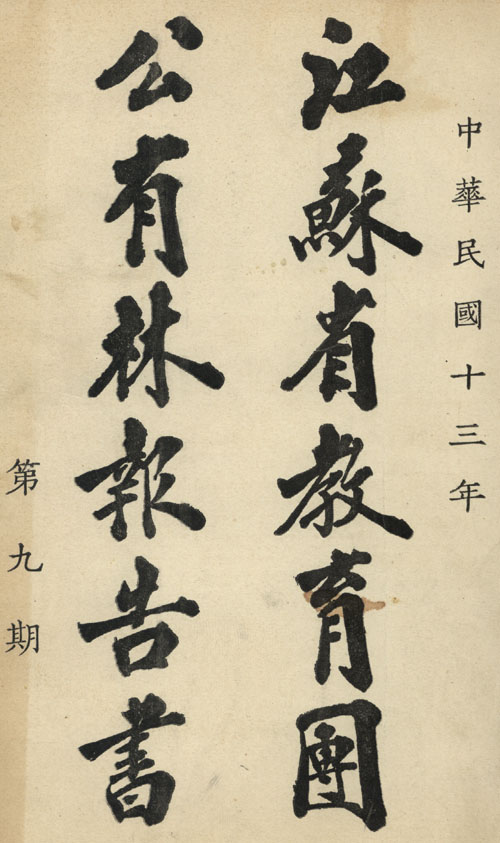 中華民國十三年
江蘇省教育團
公有林報告書
第九期